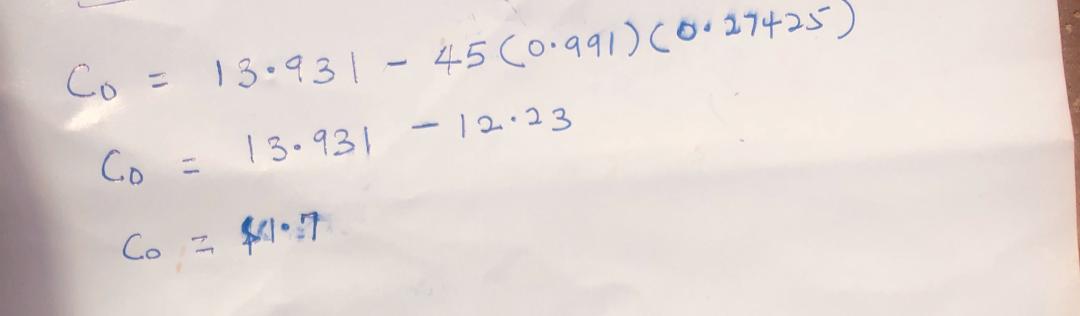 Co = 13.931 - 45(0.991)(0.27425)
Co = 13.931 - 12.23
Co = $1.7